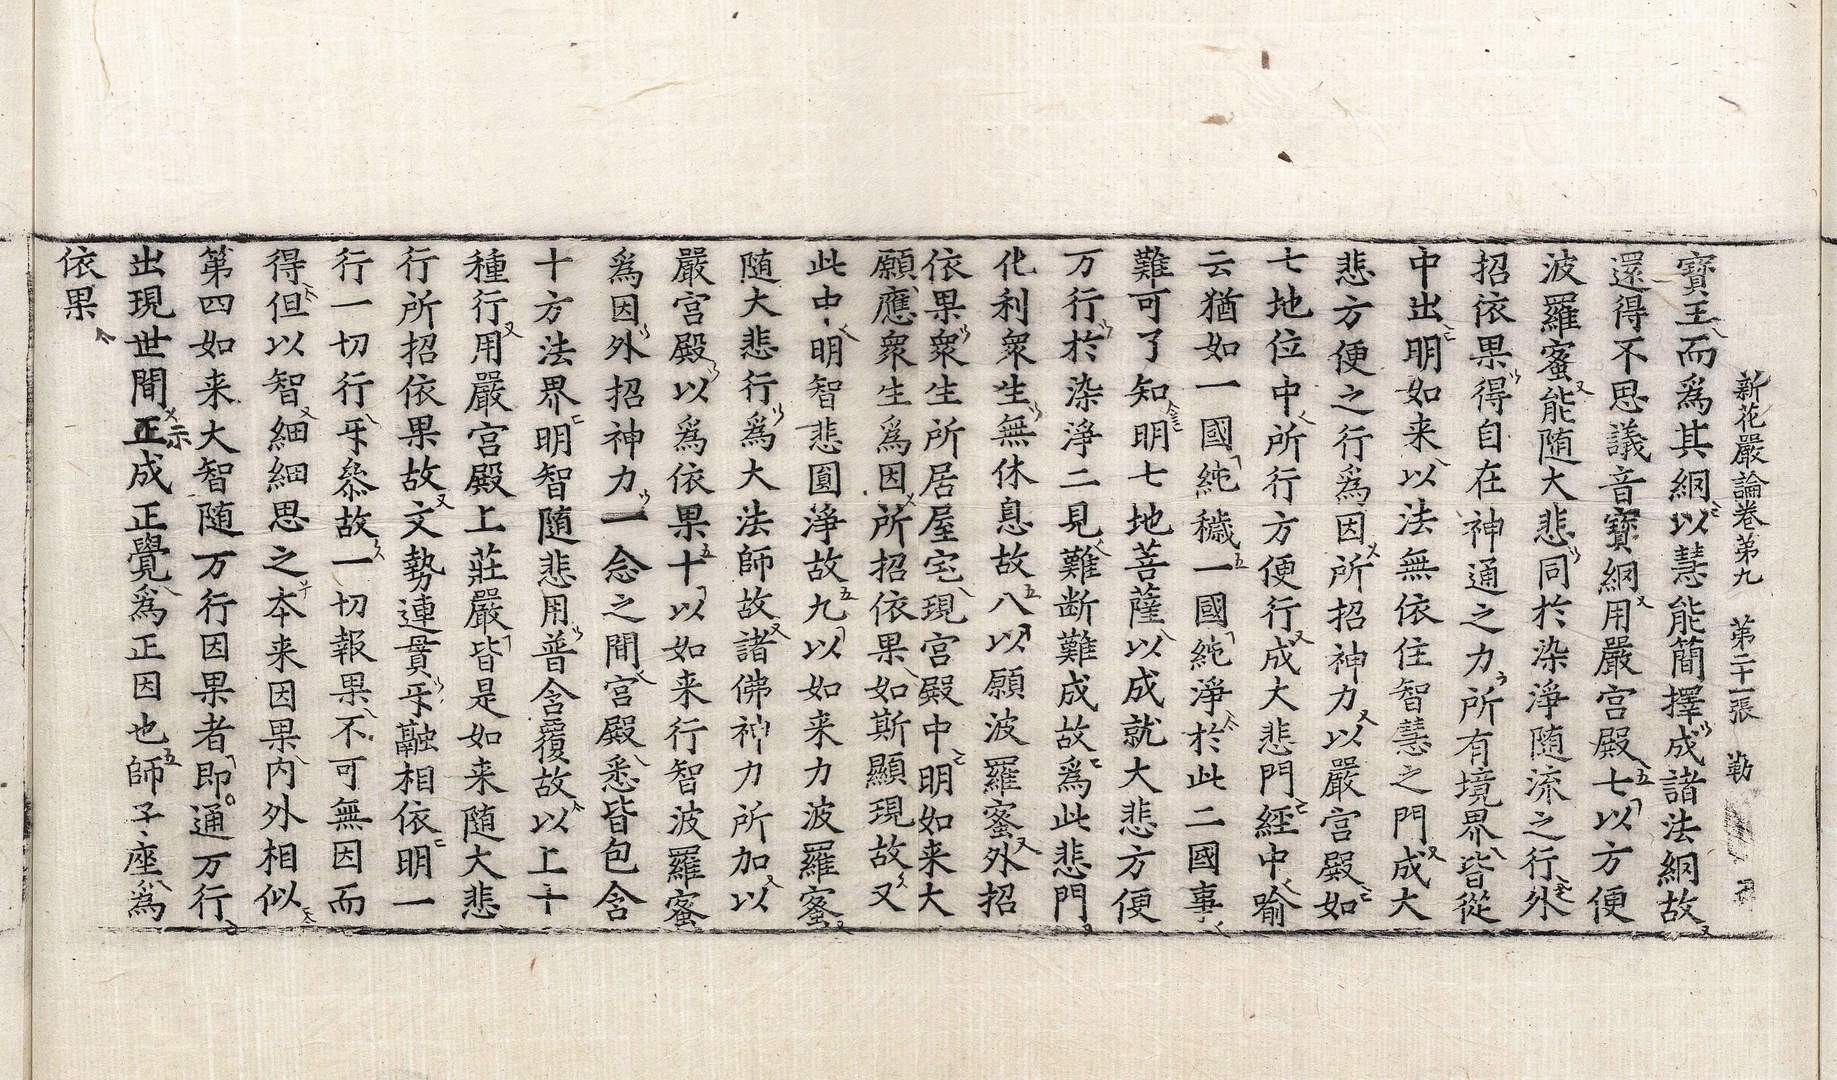 新花嚴論卷第九　第二十一張　勒
寶王而爲其綱以慧能簡擇成諸法網故
還得不思議音寶網用嚴宮殿七以方便
波羅蜜能随大悲同於染淨随流之行外
招依果得自在神通之力所有境界皆從
中出明如来以法無依住智慧之門成大
悲方便之行爲因所招神力以嚴宮殿如
七地位中所行方便行成大悲門經中喻
云猶如一國純穢一國純淨於此二國事
難可了知明七地菩薩以成就大悲方便
万行於染淨二見難断難成故爲此悲門
化利衆生無休息故八以願波羅蜜外招
依果衆生所居屋宅現宮殿中明如来大
願應衆生爲因所招依果如斯顯現故又
此中明智悲圓淨故九以如来力波羅蜜
随大悲行爲大法師故諸佛神力所加以
嚴宮殿以爲依果十以如来行智波羅蜜
爲因外招神力一念之間宮殿悉皆包含
十方法界明智随悲用普含覆故以上十
種行用嚴宮殿上莊嚴皆是如来随大悲
行所招依果故文勢連貫㸦融相依明一
行一切行㸦叅故一切報果不可無因而
得但以智細細思之本来因果内外相似
第四如来大智随万行因果者即通万行
出現世間正成正覺爲正因也師子座爲
依果